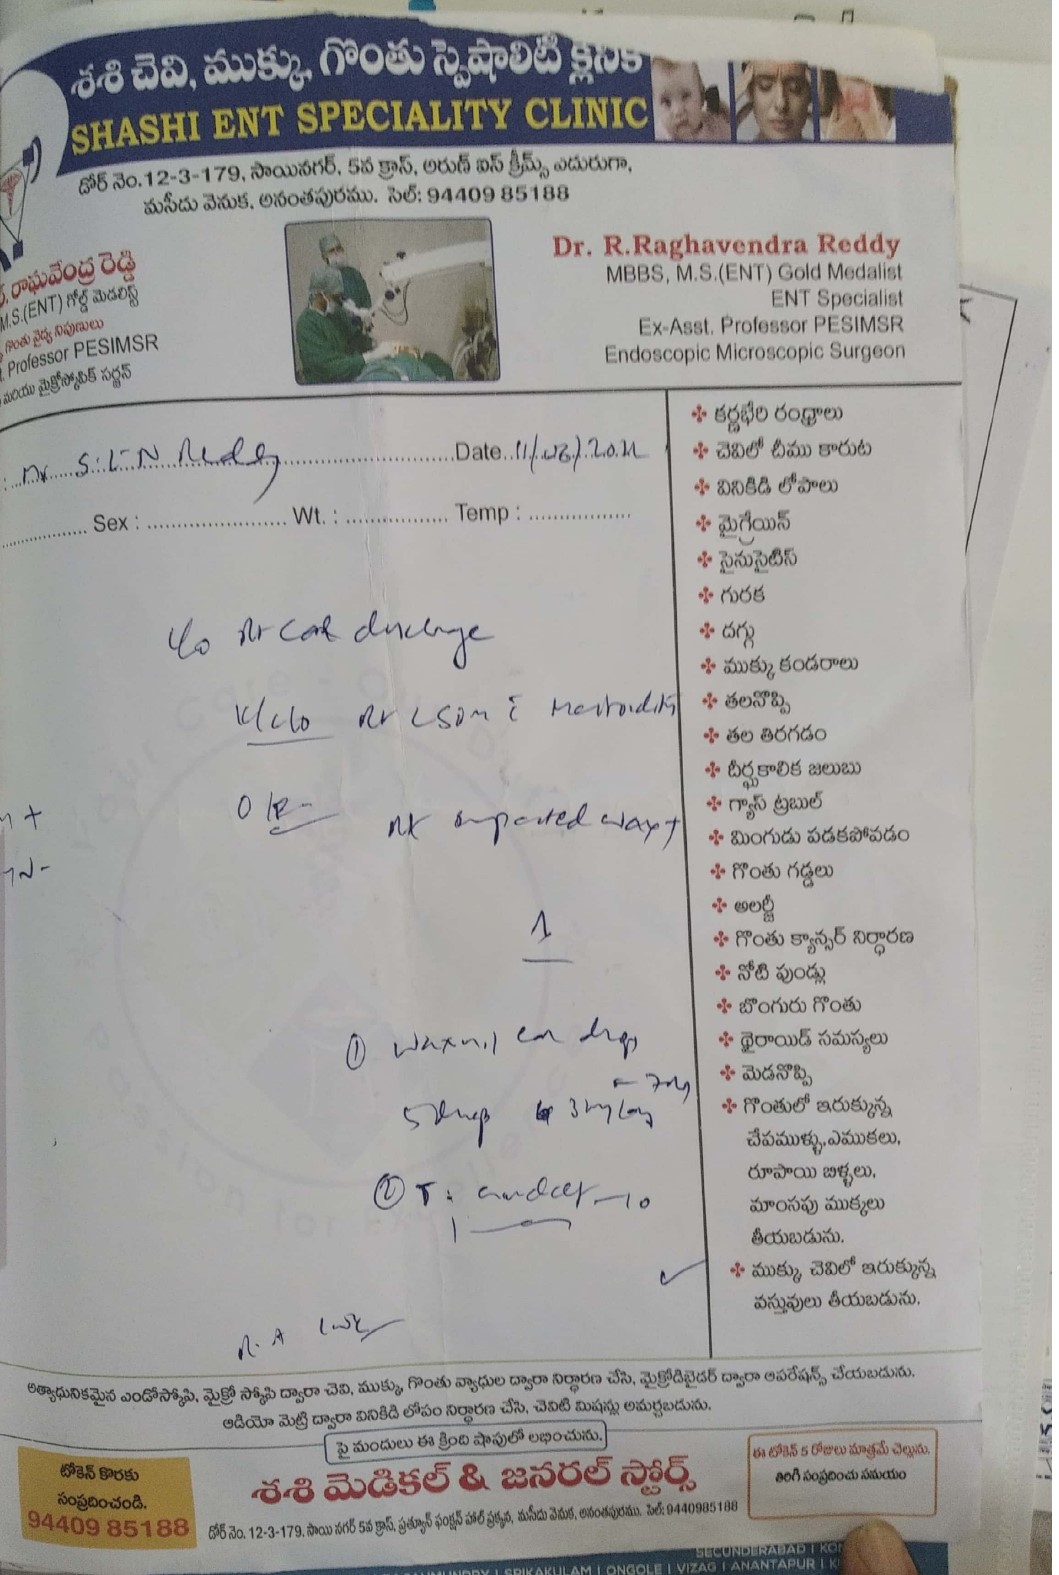 శశి చెవి, ముక్కు, గొంతు స్పెషాలిటీ క్లినిక్
SHASHI ENT SPECIALITY CLINIC
డోర్ నెం.12-3-179, సాయినగర్, 5వ క్రాస్, అరుణ్ ఐస్ క్రీమ్స్ ఎదురుగా,
మసీదు వెనుక, అనంతపురము. సెల్: 94409 85188
రాఘవేంద్ర రెడ్డి
M.S.(ENT) గోల్డ్ మెడలిస్ట్
గొంతు వైద్య నిపుణులు
Professor PESIMSR
మరియు మైక్రోస్కోపిక్ సర్జన్
Dr. R.Raghavendra Reddy
MBBS, M.S.(ENT) Gold Medalist
ENT Specialist
Ex-Asst. Professor PESIMSR
Endoscopic Microscopic Surgeon
Reddy Date 11/
Sex : Wt. : Temp :
c/o Rt ear discharge
K/c/o Rt CSOM c̄ Mastoiditis
O/E- Rt impacted wax +
① Waxnil ear drops
5 drops 3
② T.
కర్ణభేరి రంధ్రాలు
చెవిలో చీము కారుట
వినికిడి లోపాలు
మైగ్రేయిన్
సైనుసైటిస్
గురక
దగ్గు
ముక్కు కండరాలు
తలనొప్పి
తల తిరగడం
దీర్ఘకాలిక జలుబు
గ్యాస్ ట్రబుల్
మింగుడు పడకపోవడం
గొంతు గడ్డలు
అలర్జీ
గొంతు క్యాన్సర్ నిర్ధారణ
నోటి పుండ్లు
బొంగురు గొంతు
థైరాయిడ్ సమస్యలు
మెడనొప్పి
గొంతులో ఇరుక్కున్న
చేపముళ్ళు,ఎముకలు,
రూపాయి బిళ్ళలు,
మాంసపు ముక్కలు
తీయబడును.
ముక్కు, చెవిలో ఇరుక్కున్న
వస్తువులు తీయబడును.
అత్యాధునికమైన ఎండోస్కోపి, మైక్రో స్కోపి ద్వారా చెవి, ముక్కు, గొంతు వ్యాధుల ద్వారా నిర్ధారణ చేసి, మైక్రోడిబ్రైడర్ ద్వారా ఆపరేషన్స్ చేయబడును.
ఆడియో మెట్రి ద్వారా వినికిడి లోపం నిర్ధారణ చేసి, చెవిటి మిషన్లు అమర్చబడును.
పై మందులు ఈ క్రింది షాపులో లభించును.
టోకెన్ కొరకు
సంప్రదించండి.
94409 85188
శశి మెడికల్ & జనరల్ స్టోర్స్
డోర్ నెం. 12-3-179, సాయి నగర్ 5వ క్రాస్, ప్రత్యూష ఫంక్షన్ హాల్ ప్రక్కన, మసీదు వెనుక, అనంతపురము. సెల్: 9440985188
ఈ టోకెన్ 5 రోజులు మాత్రమే చెల్లును.
తిరిగి సంప్రదించు సమయం
SECUNDERABAD
SRIKAKULAM | ONGOLE | VIZAG | ANANTAPUR